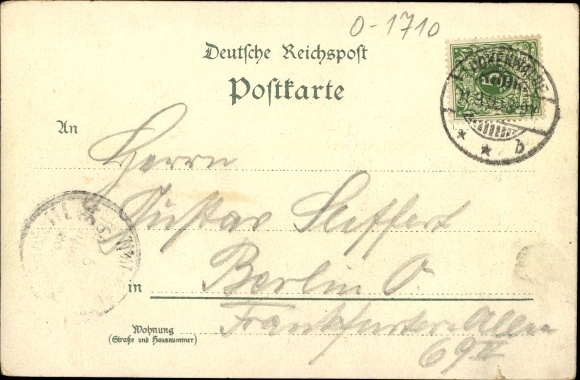 O-1710
Deutsche Reichspost
Postkarte
LUCKENWALDE
b
An
Herrn
Gustav Seiffert
in Berlin O
Wohnung
(Straße und Hausnummer)
Frankfurter Allee
69 II